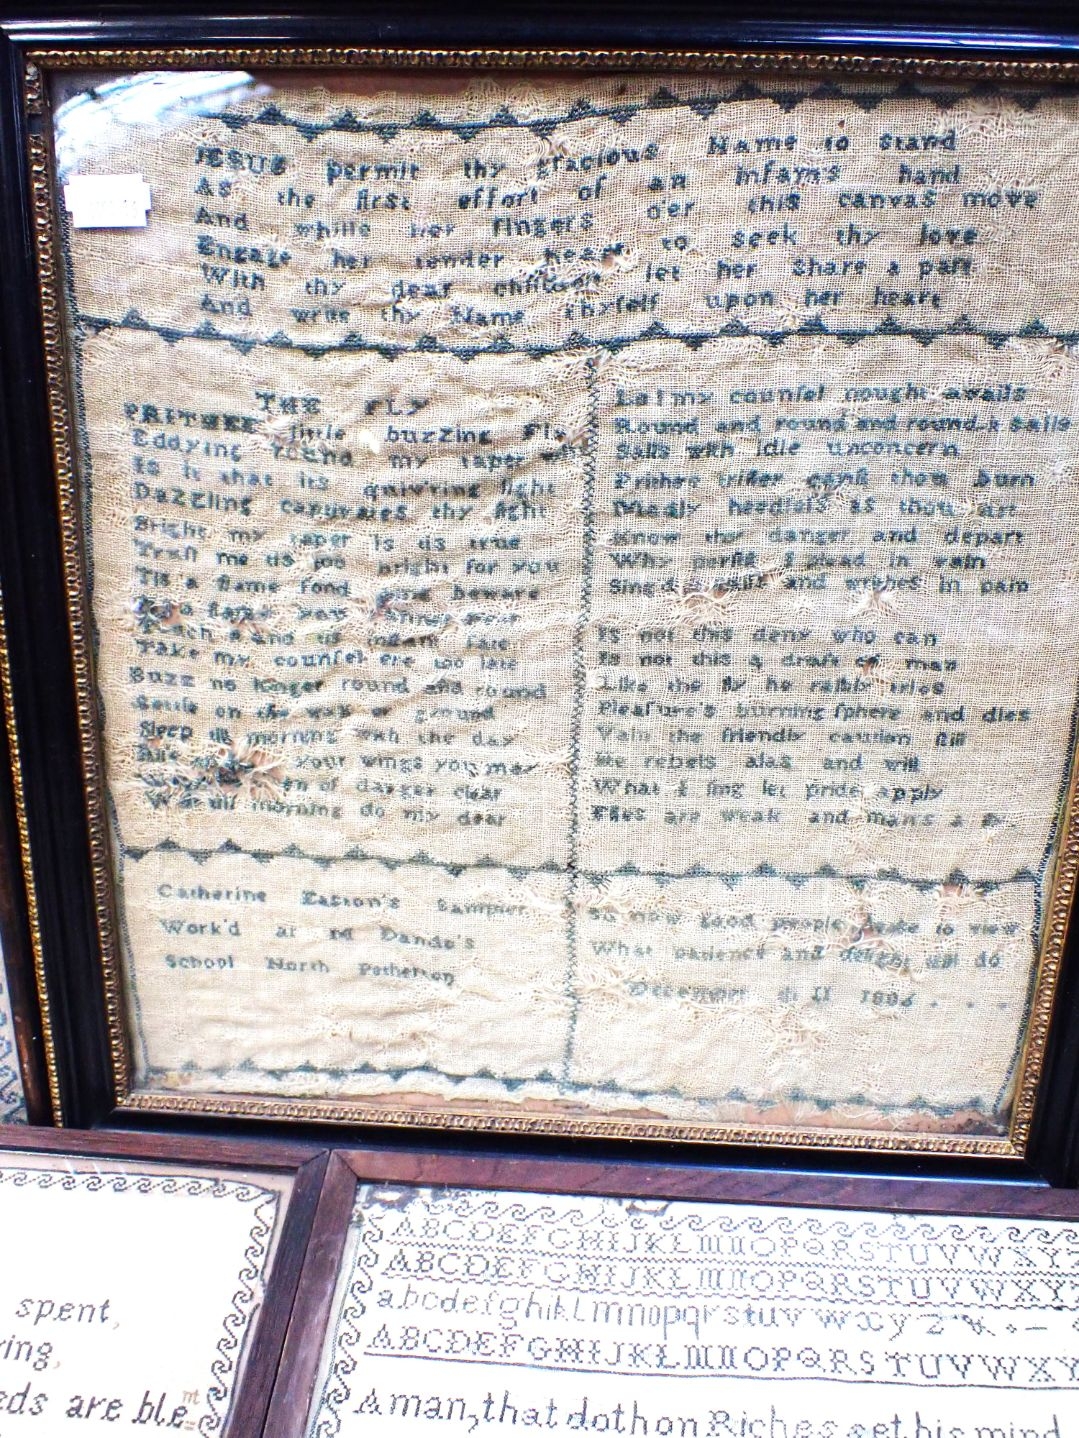 JESUS permit thy gracious Name to stand
As the first effort of an infants hand
And while her fingers o'er this canvas move
Engage her tender heart to seek thy love
With thy dear children let her Share a part
And write thy Name thyself upon her heart
THE FLY
PRITHEE little buzzing Fly
Eddying round my taper why
Is it that its quiv'ring light
Dazzling captivates thy sight
Bright my taper is tis true
Trust me tis too bright for you
Tis a flame fond beware
Tis a flame
Touch and tis instant fate
Take my counsel ere too late
Buzz no longer round and round
Settle on the wall or ground
Sleep till morning with the day
your wings you may
of danger clear
Wait till morning do my dear
Lo! my counsel nought avails
Round and round and round it Sails
Sails with idle unconcern
Prithee trifler canst thou burn
Madly heedless as thou art
Know thy danger and depart
Why persist I plead in vain
Sing'd and writhes in pain
Is not this deny who can
Is not this a draft of man
Like the fly he rashly tries
Pleasure's burning sphere and dies
Vain the friendly caution still
He rebels alas and will
What I sing let pride apply
Flies are weak and man's a fly
Catherine Easton's Sampler
Work'd at M Dando's
School North Petherton
So now good people please to view
What patience and delight will do
December 11
spent,
eds are ble
mt
ABCDEFGHIJKLMNOPQRSTUVWXY
ABCDEFGHIJKLMNOPQRSTUVWXYZ
abcdefghiklmnopqrstuvwxyz &
ABCDEFGHIJKLMNOPQRSTUVWXY
A man, that doth on Riches set his mind